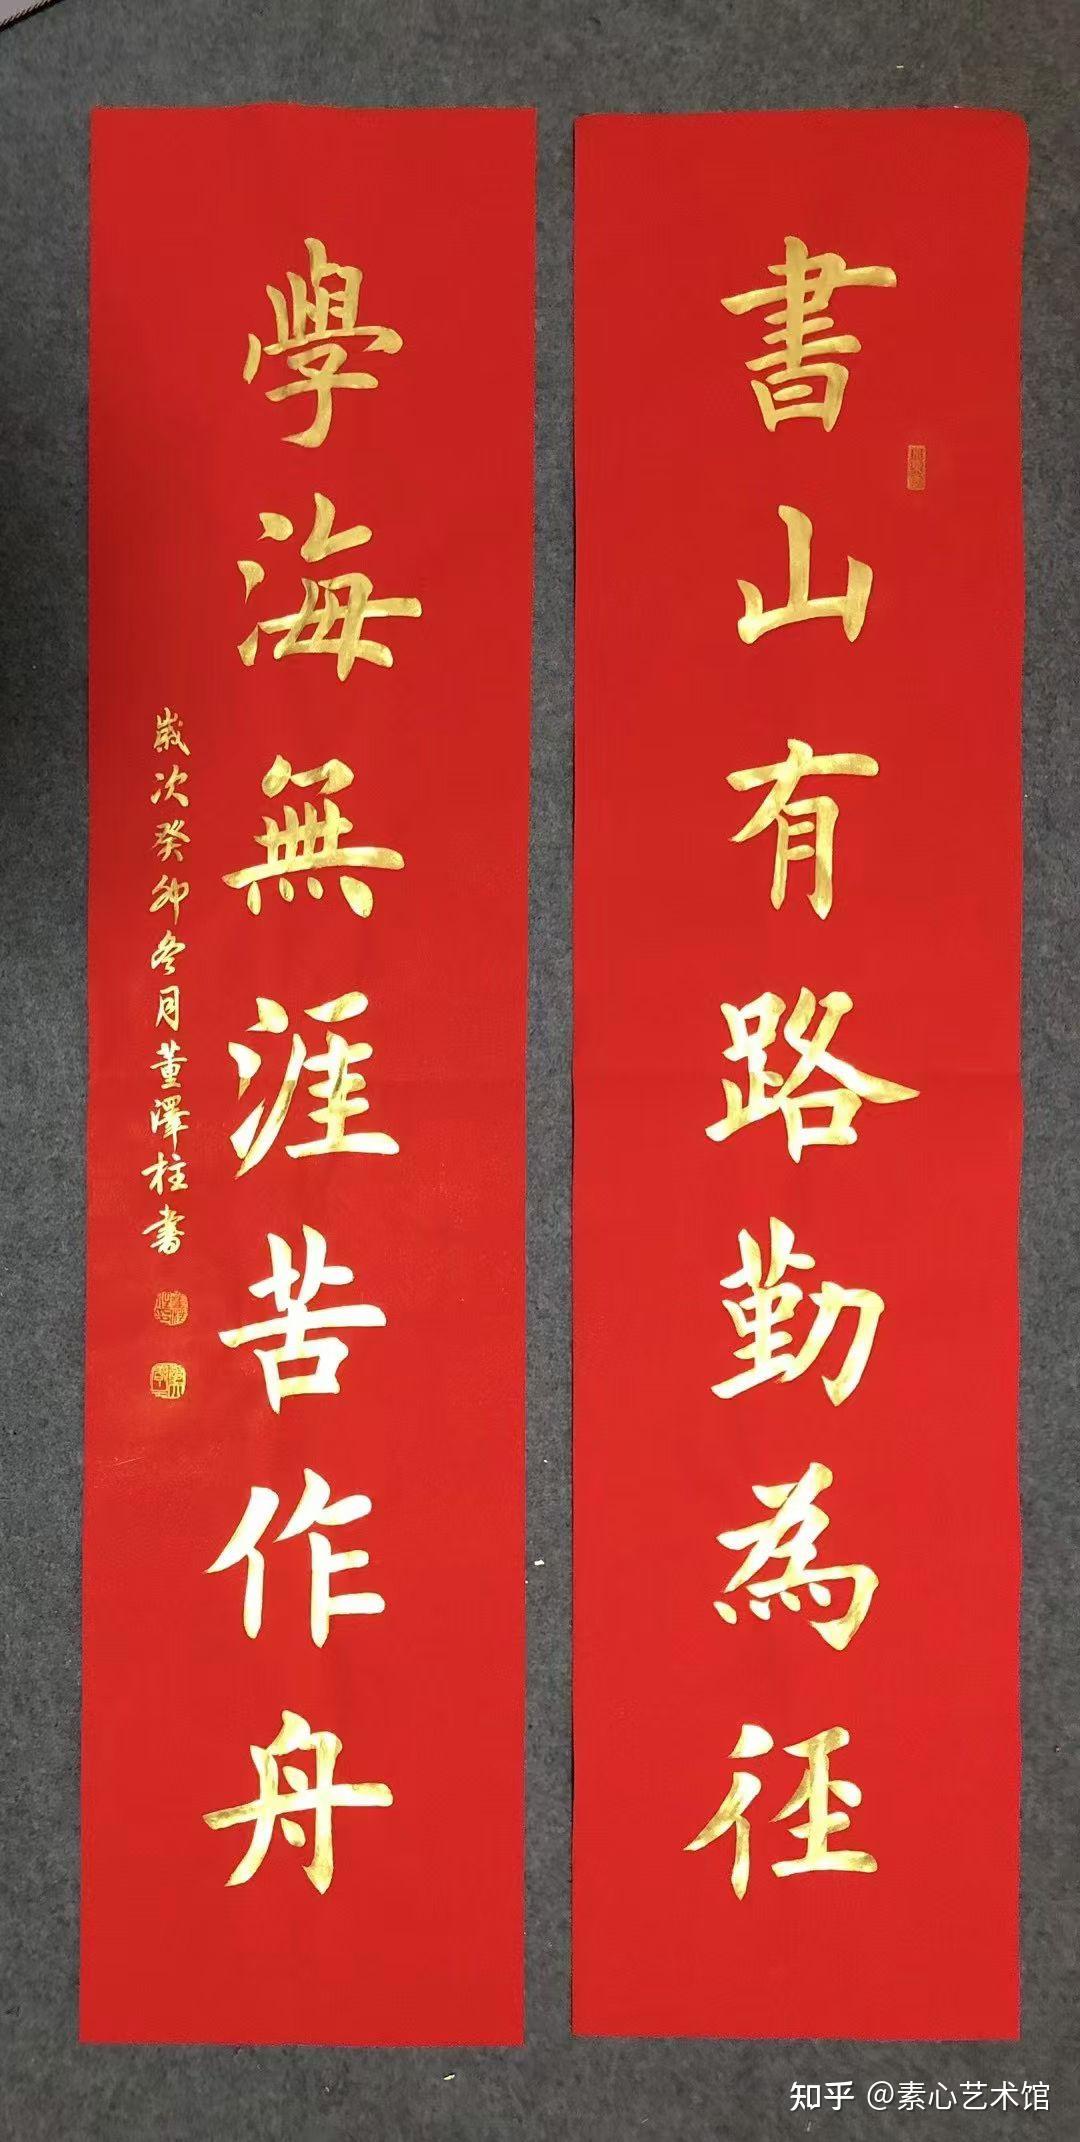 書山有路勤為径
學海無涯苦作舟
歲次癸卯冬月董澤柱書
知乎 @素心艺术馆